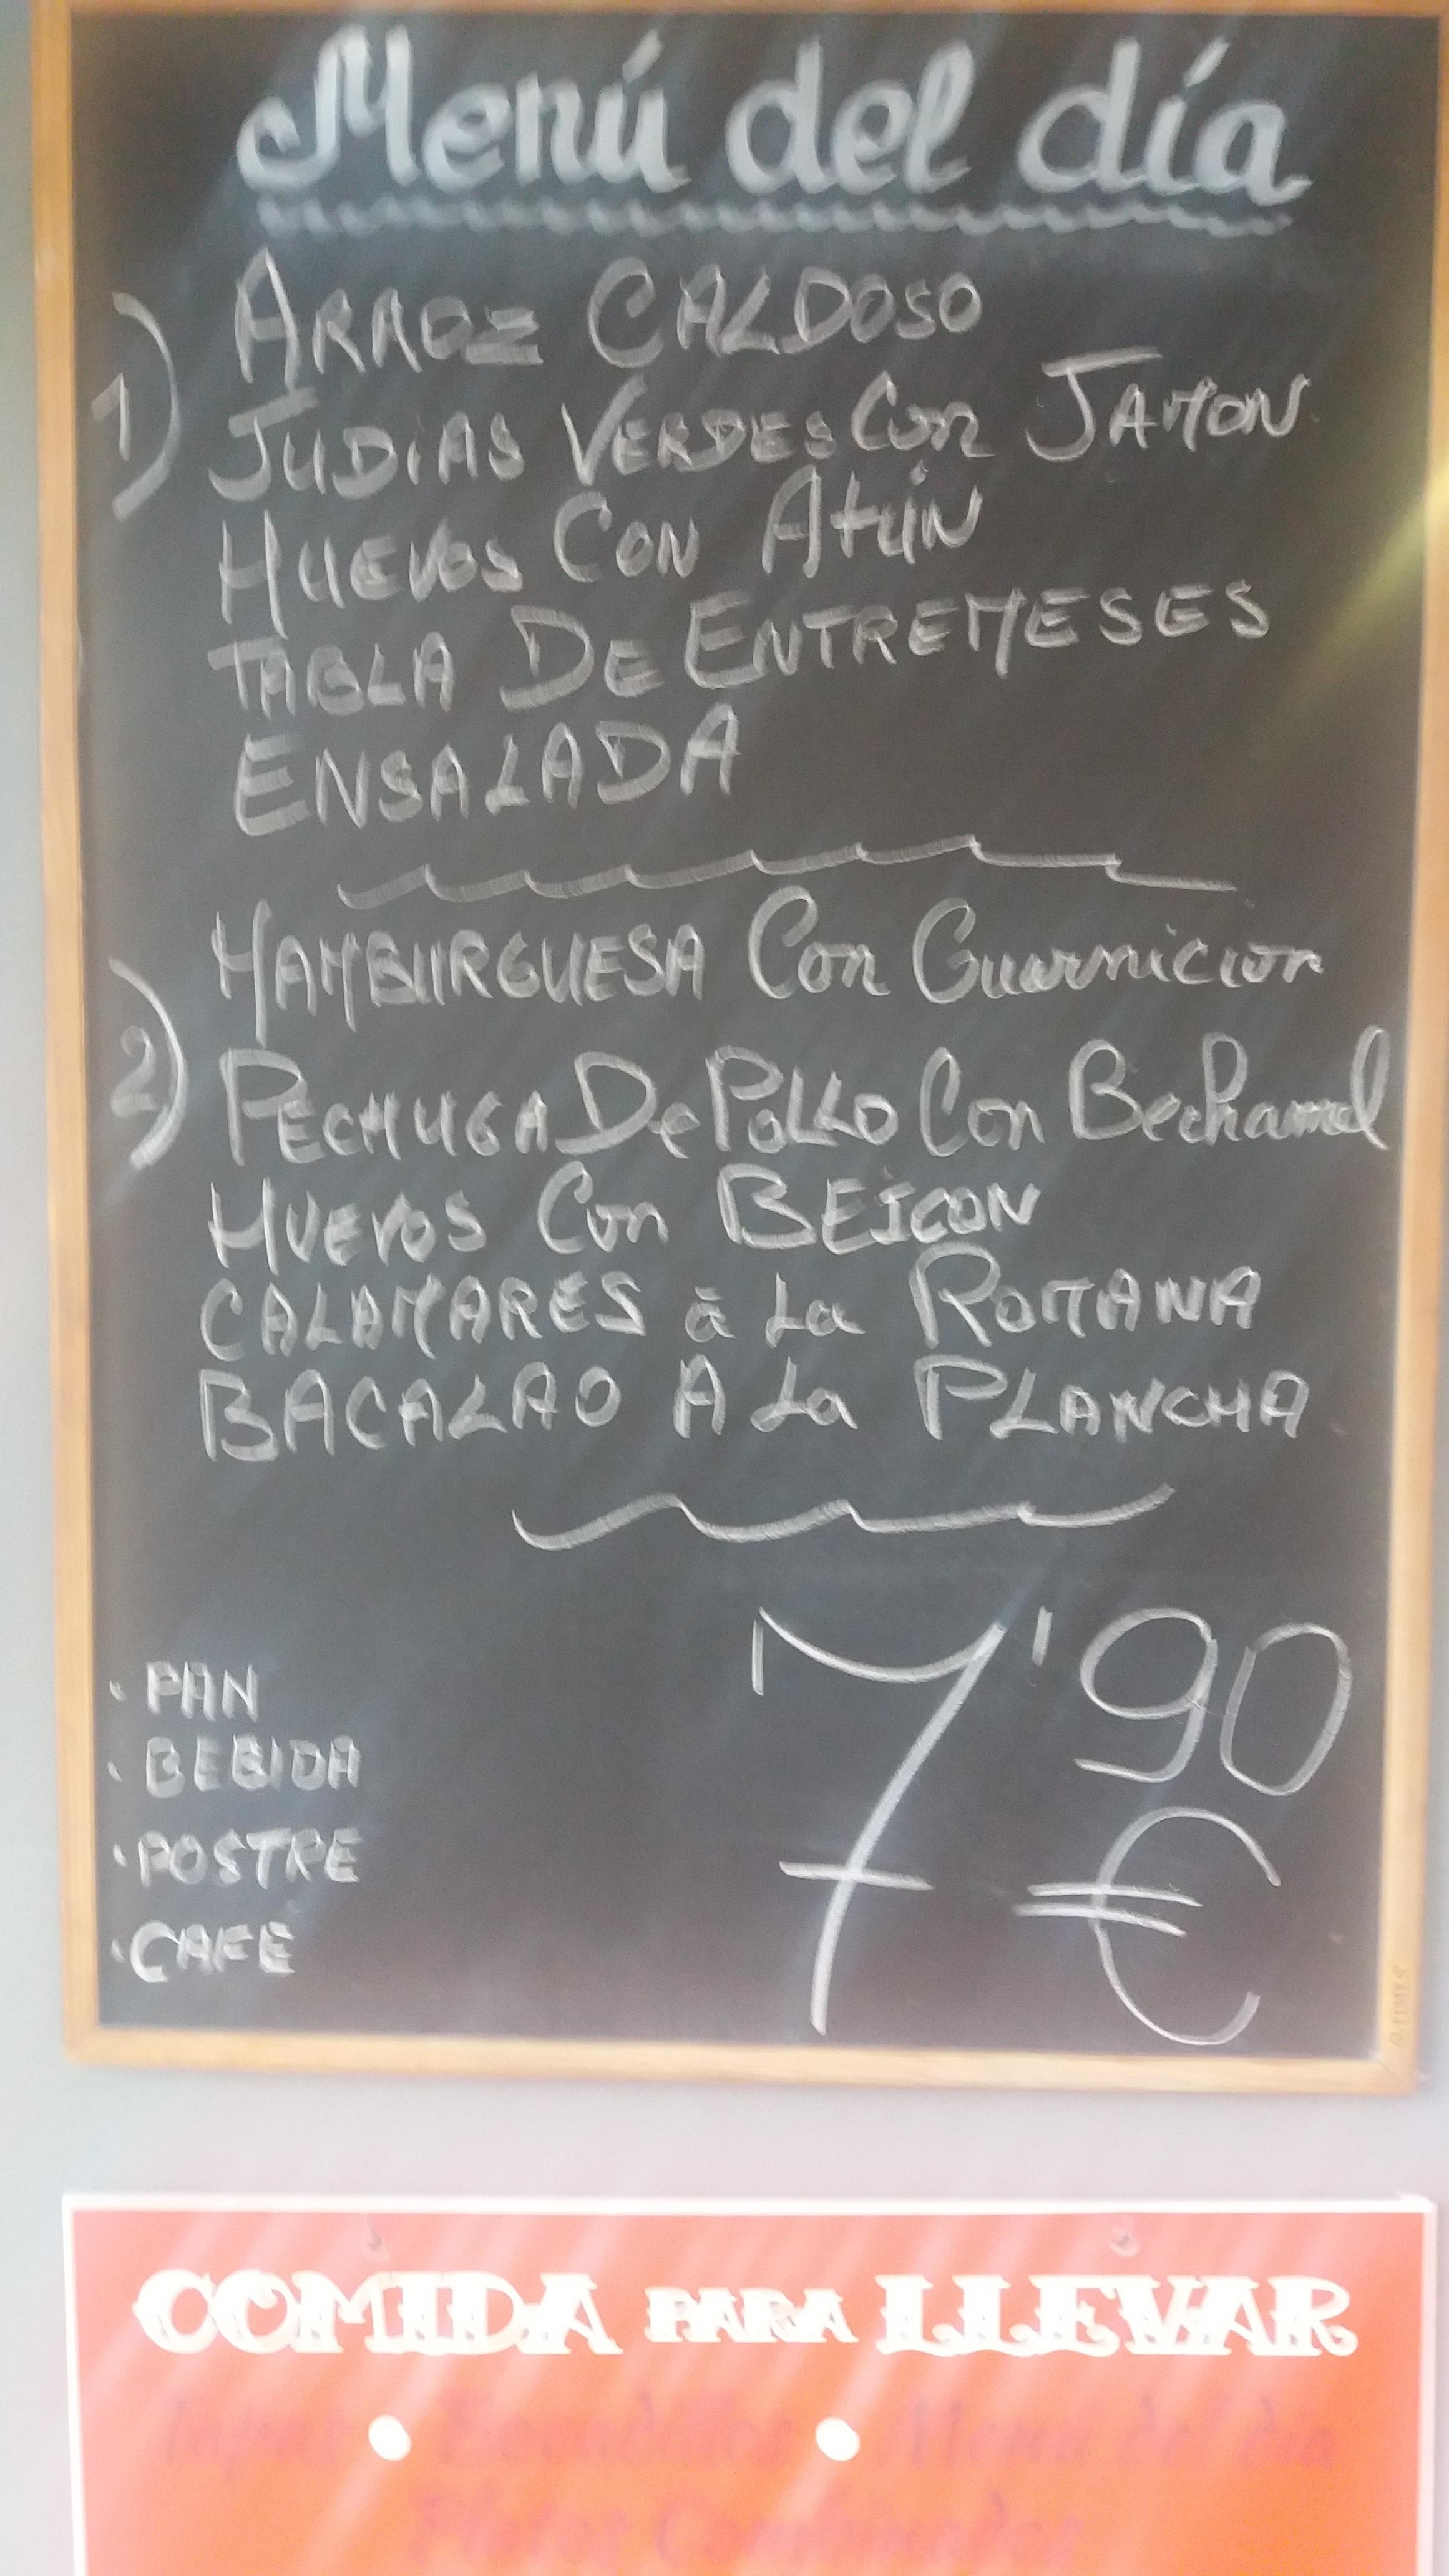 Menú del día
1)
ARROZ CALDOSO
JUDIAS VERDES Con JAMON
HUEVOS CON Atún
TABLA DE ENTREMESES
ENSALADA
2)
HAMBURGUESA Con Guarnicion
PECHUGA De POLLO Con Bechamel
HUEVOS Con BEICON
CALAMARES a La ROMANA
BACALAO A La PLANCHA
7'90
€
· PAN
· BEBIDA
· POSTRE
· CAFE
COMIDA PARA LLEVAR
Tapas • Bocadillos • Menú del día
Platos Combinados